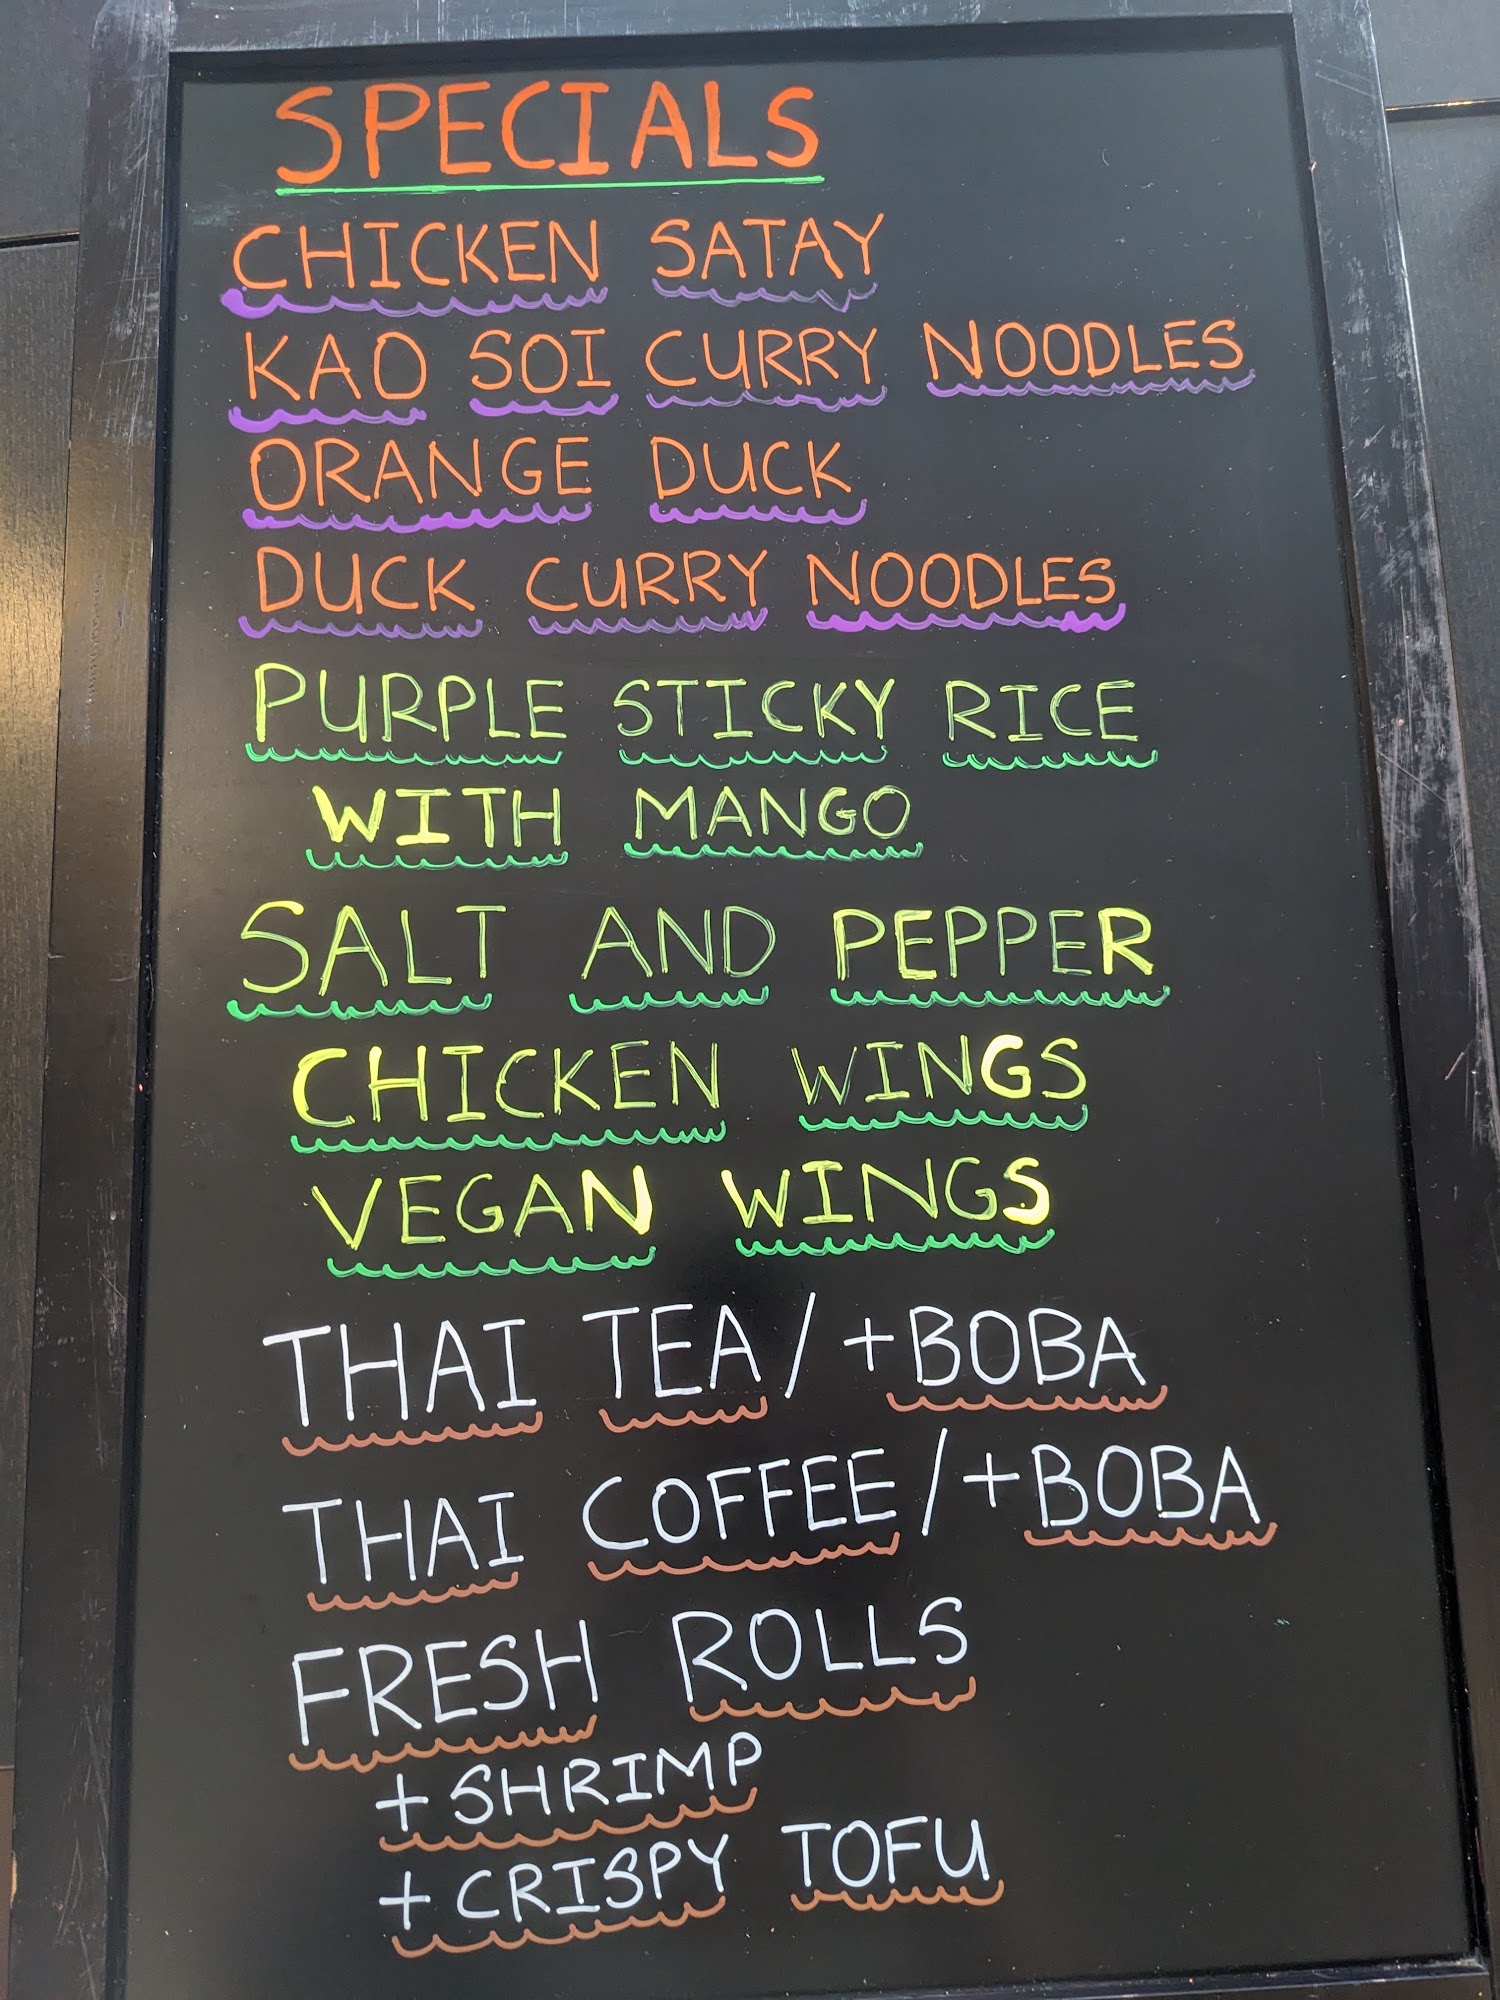 SPECIALS
CHICKEN SATAY
KAO SOI CURRY NOODLES
ORANGE DUCK
DUCK CURRY NOODLES
PURPLE STICKY RICE
WITH MANGO
SALT AND PEPPER
CHICKEN WINGS
VEGAN WINGS
THAI TEA/+BOBA
THAI COFFEE/+BOBA
FRESH ROLLS
+SHRIMP
+CRISPY TOFU